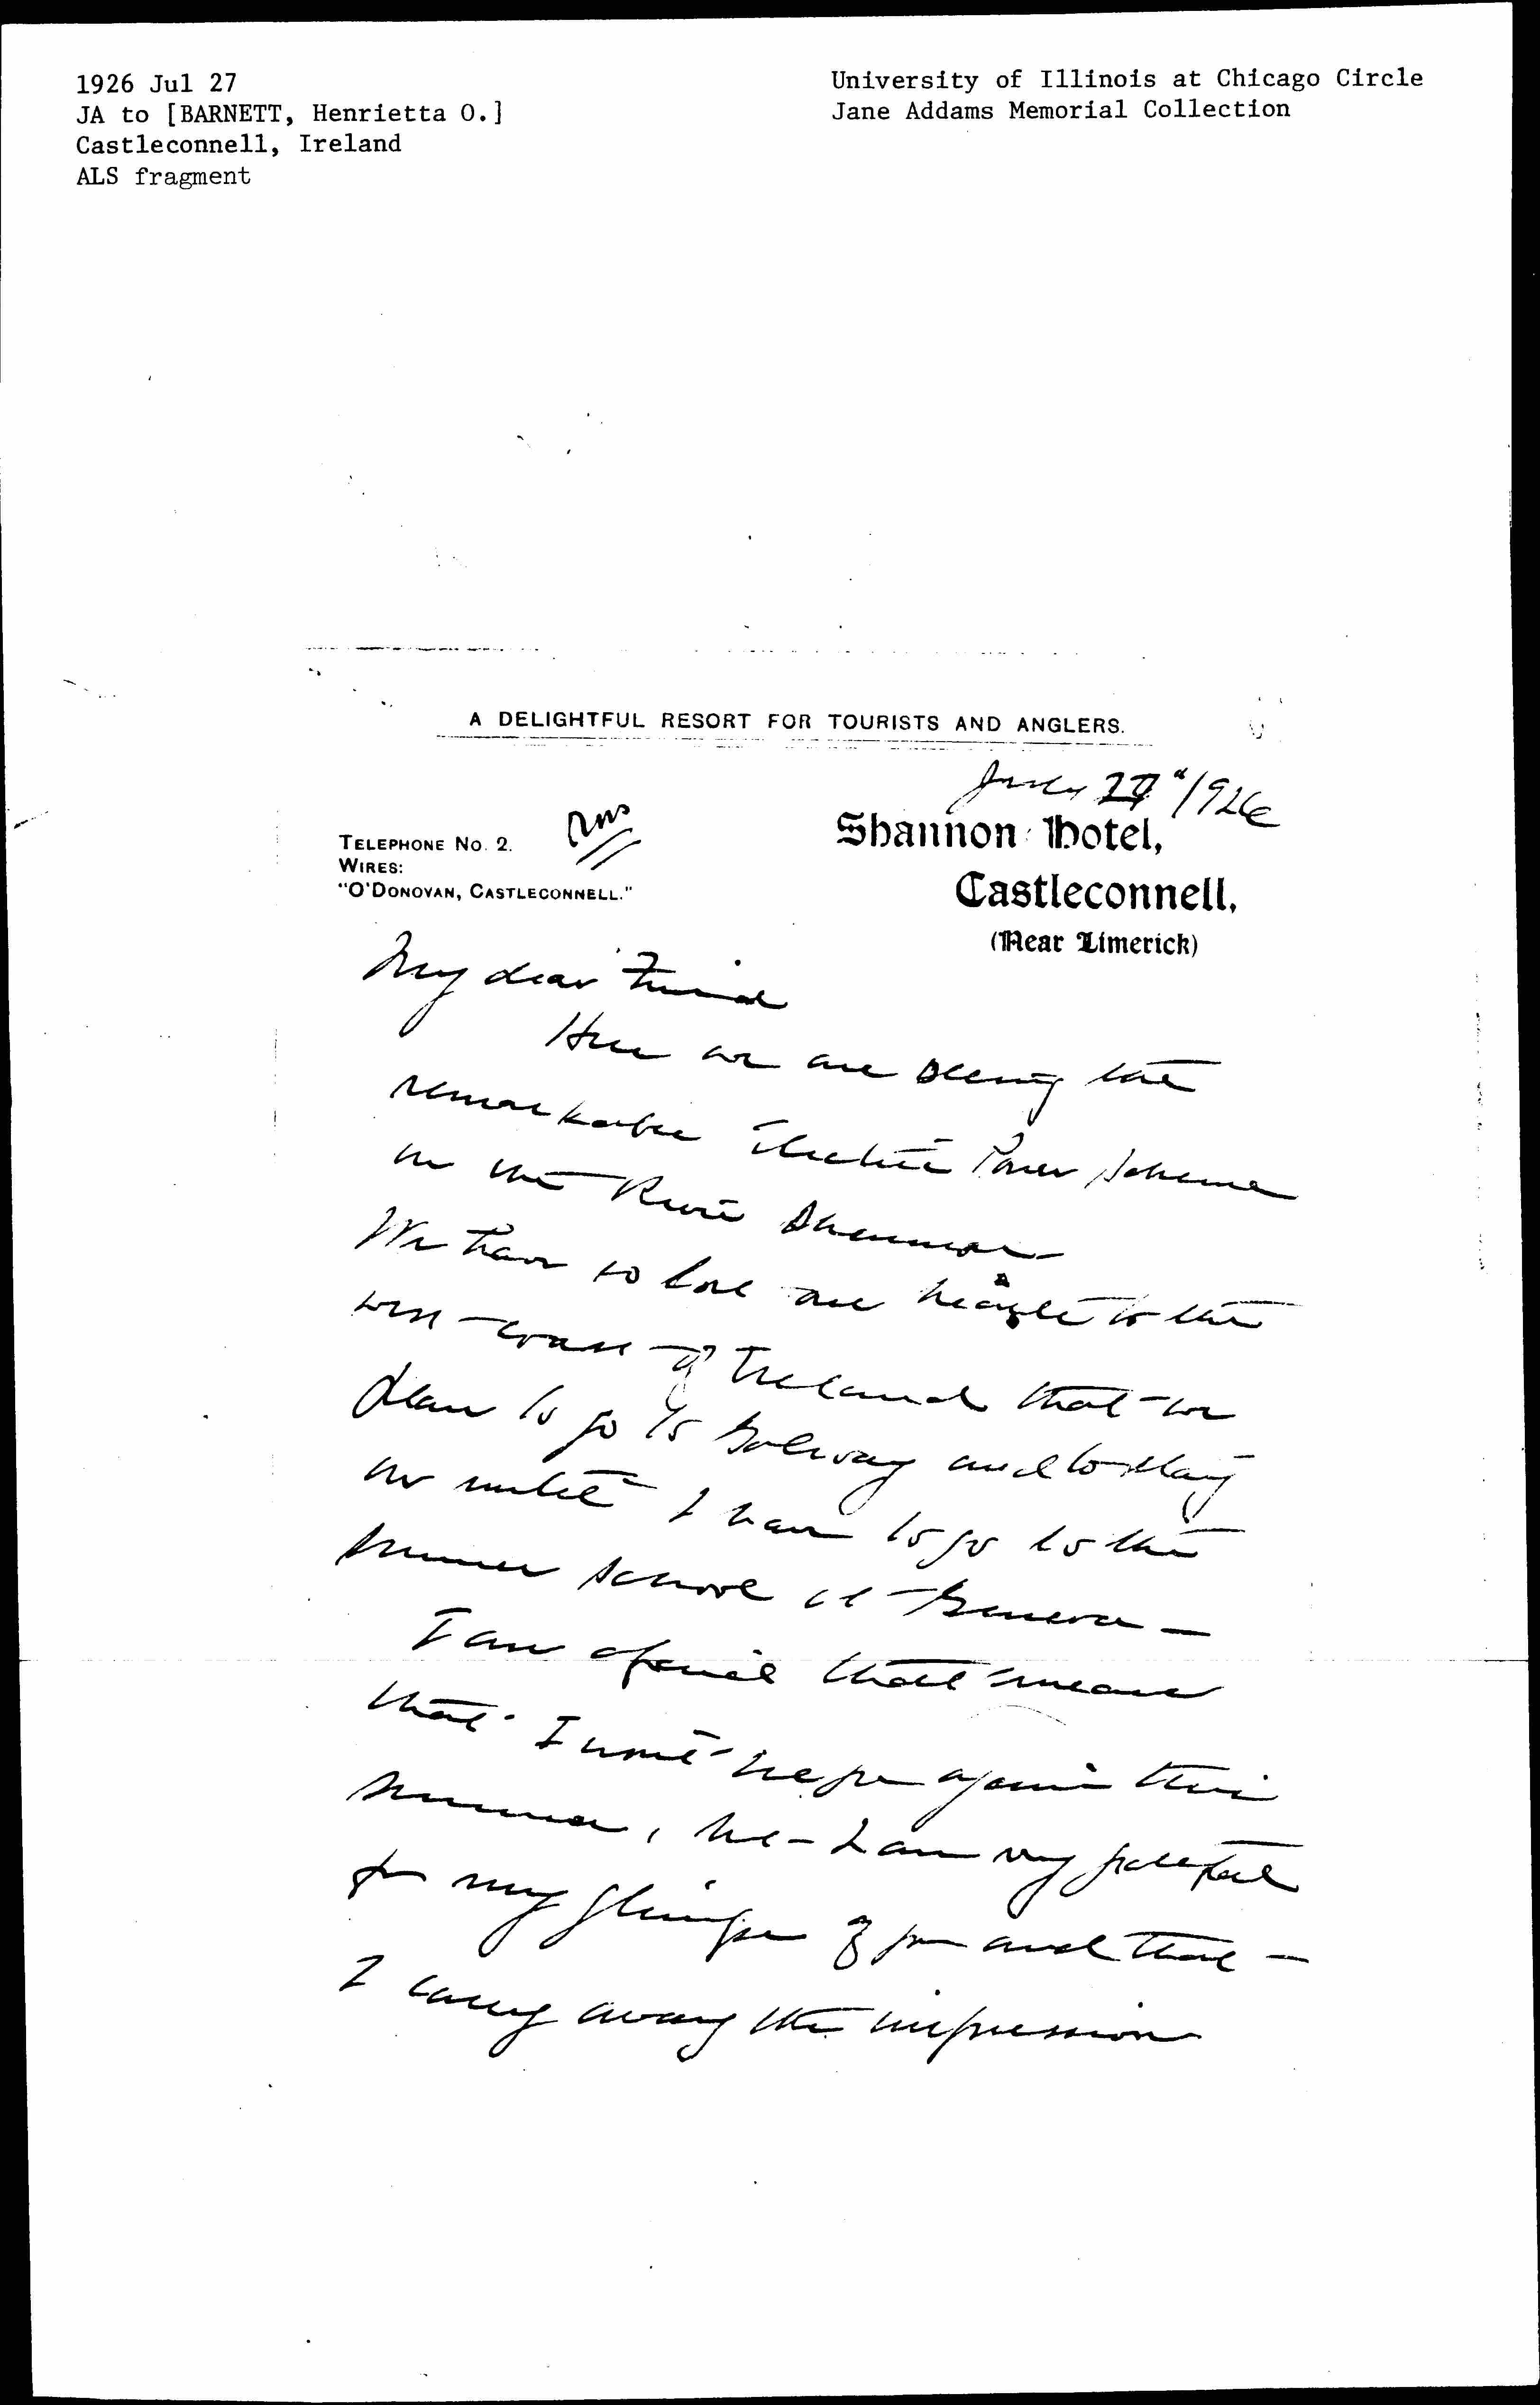 1926 Jul 27
JA to [BARNETT, Henrietta O.]
Castleconnell, Ireland
ALS fragment
University of Illinois at Chicago Circle
Jane Addams Memorial Collection
A DELIGHTFUL RESORT FOR TOURISTS AND ANGLERS.
July 27" 1926
TELEPHONE No. 2.
WIRES:
"O'DONOVAN, CASTLECONNELL."
Shannon Hotel,
Castleconnell,
(Near Limerick)
My dear Friend
Here we are seeing the
remarkable Electric Power Scheme
on the River Shannon
We have so lost our hearts to the
west coast of Ireland that we
plan to go to Galway and to stay
on until I have to go to the
summer school at Geneva —
I am afraid that means
that I won't see you again this
summer, but I am very grateful
for my glimpse of you and that —
I carry away the impression